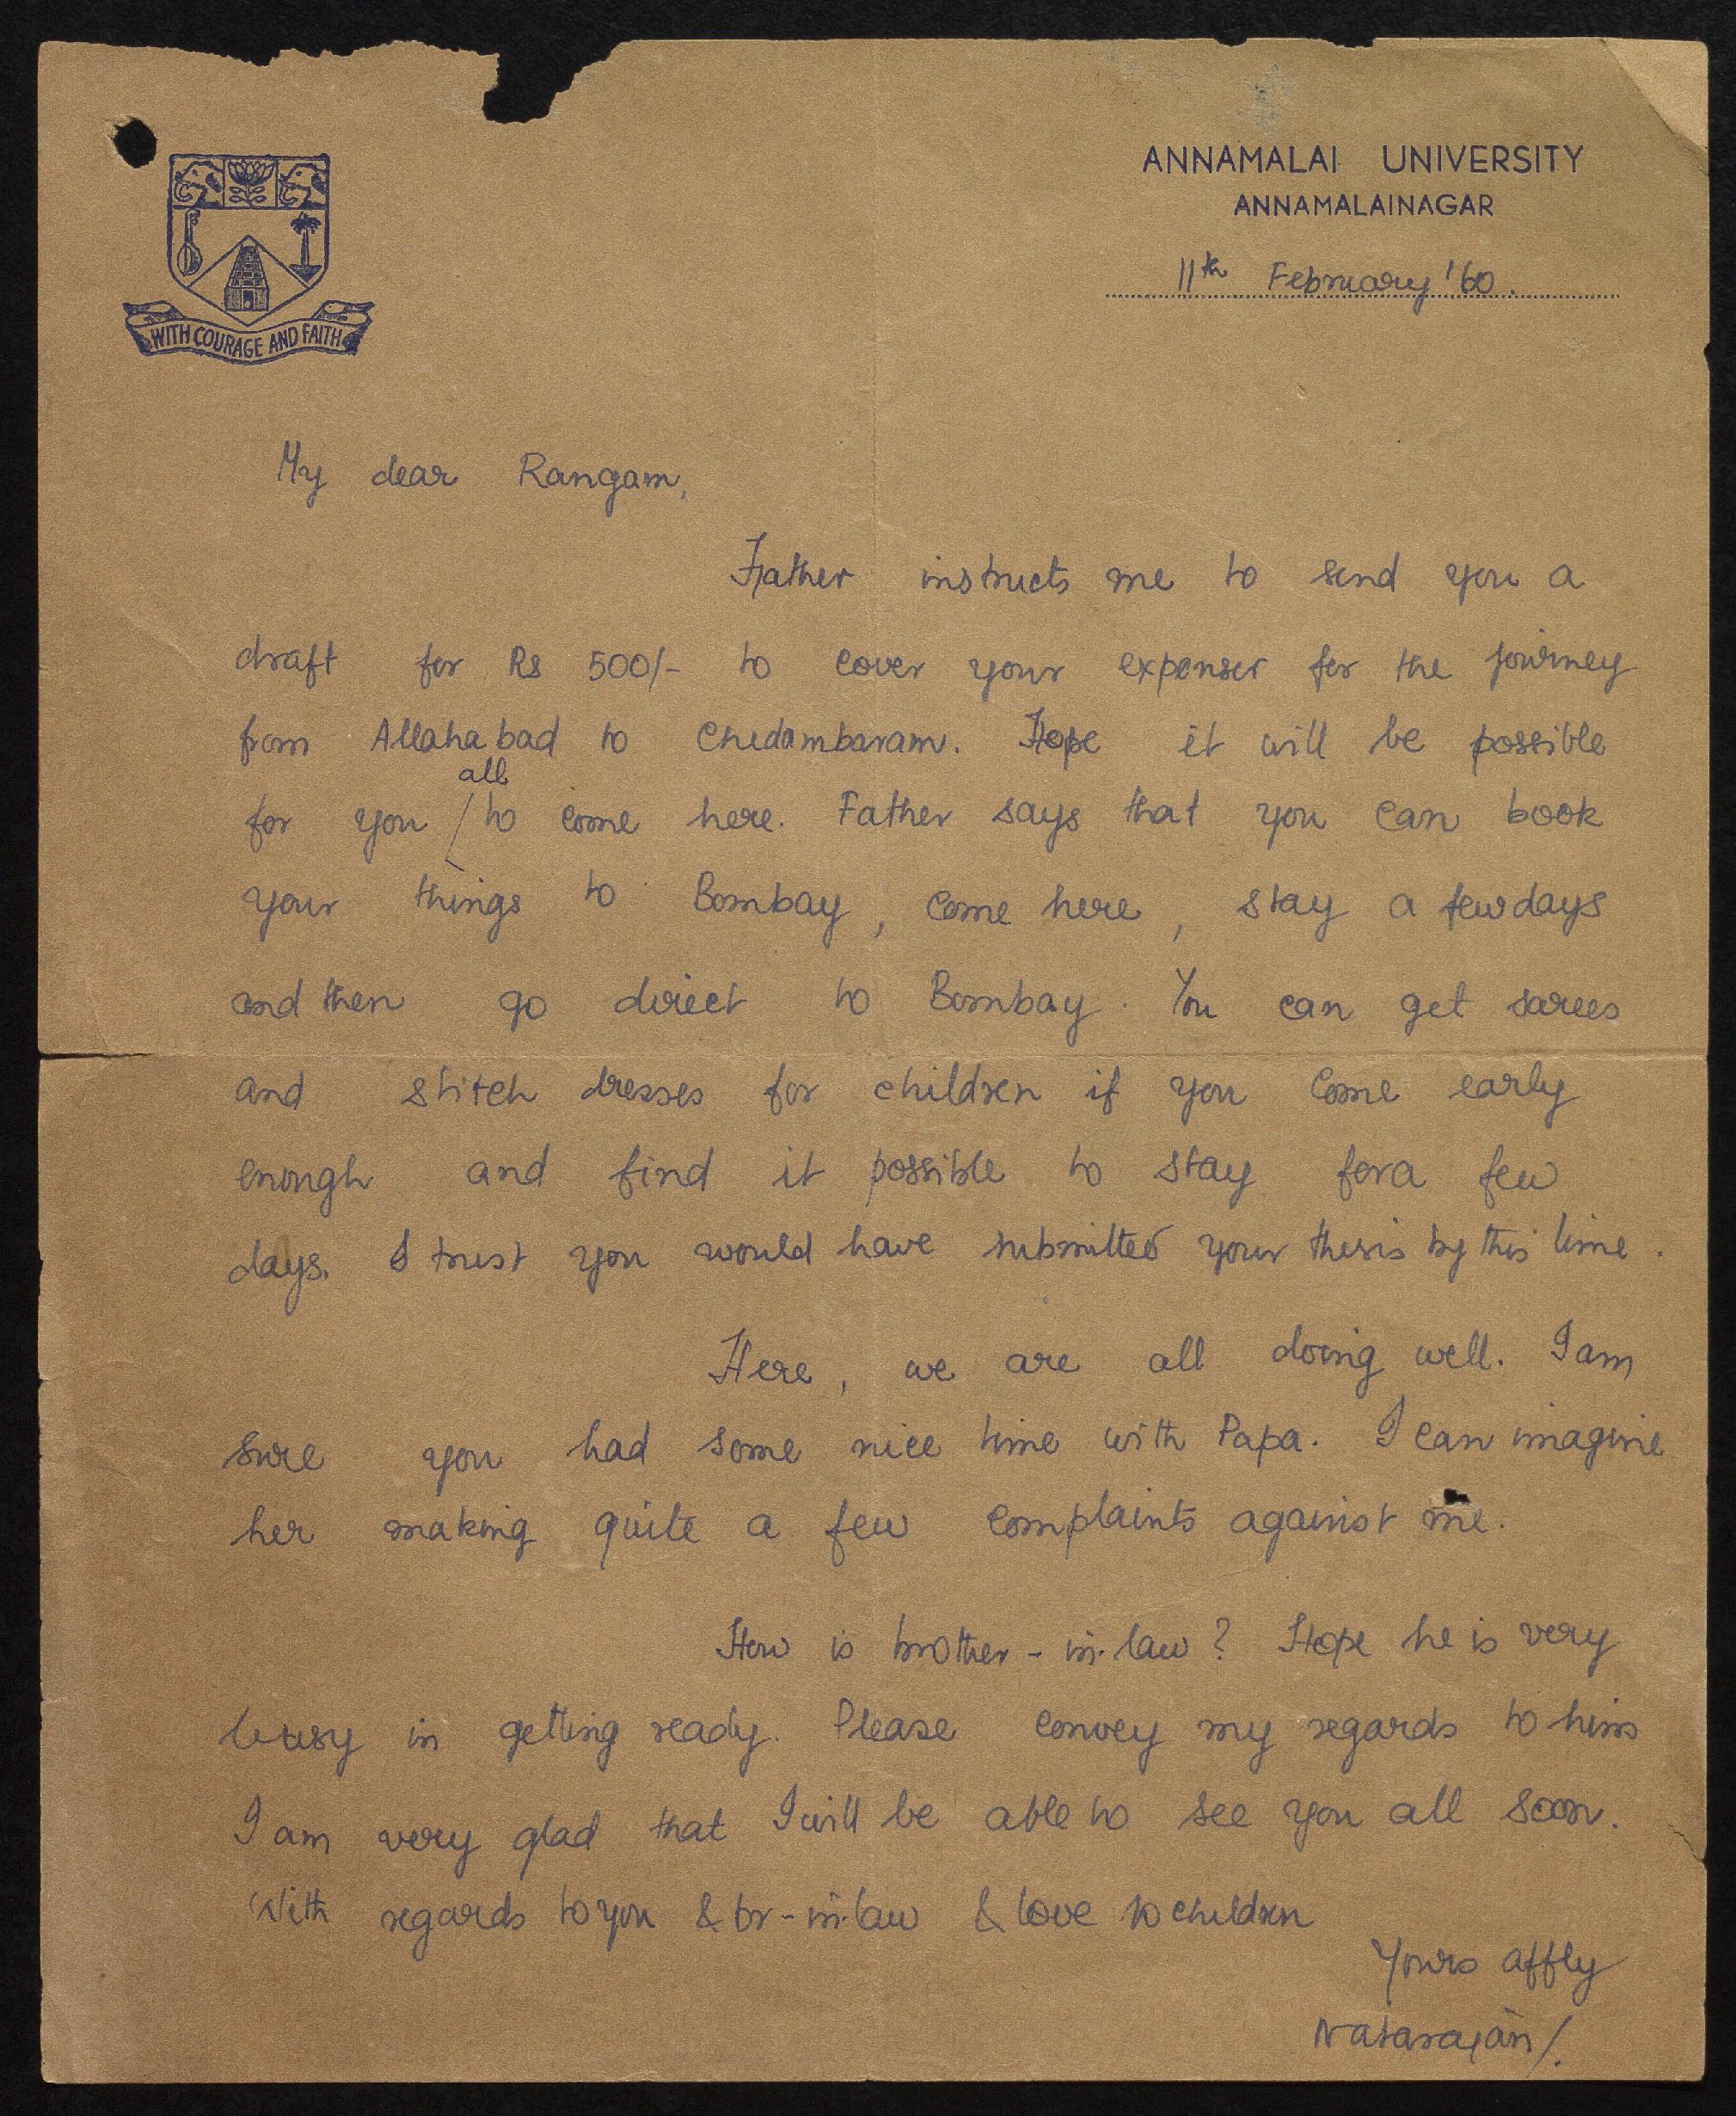 WITH COURAGE AND FAITH
ANNAMALAI UNIVERSITY
ANNAMALAINAGAR
11th February '60.
My dear Rangam,
Father instructs me to send you a
draft for Rs 500/- to cover your expenses for the journey
from Allahabad to Chidambaram. Hope it will be possible
all
for you / to come here. Father says that you can book
your things to Bombay, come here, stay a few days
and then go direct to Bombay. You can get sarees
and stitch dresses for children if you come early
enough and find it possible to stay for a few
days. I trust you would have submitted your thesis by this time.
Here, we are all doing well. I am
sure you had some nice time with Papa. I can imagine
her making quite a few complaints against me.
How is brother-in-law? Hope he is very
busy in getting ready. Please convey my regards to him
I am very glad that I will be able to see you all soon.
With regards to you & br-in-law & love to children
Yours affly
Natarajan/.